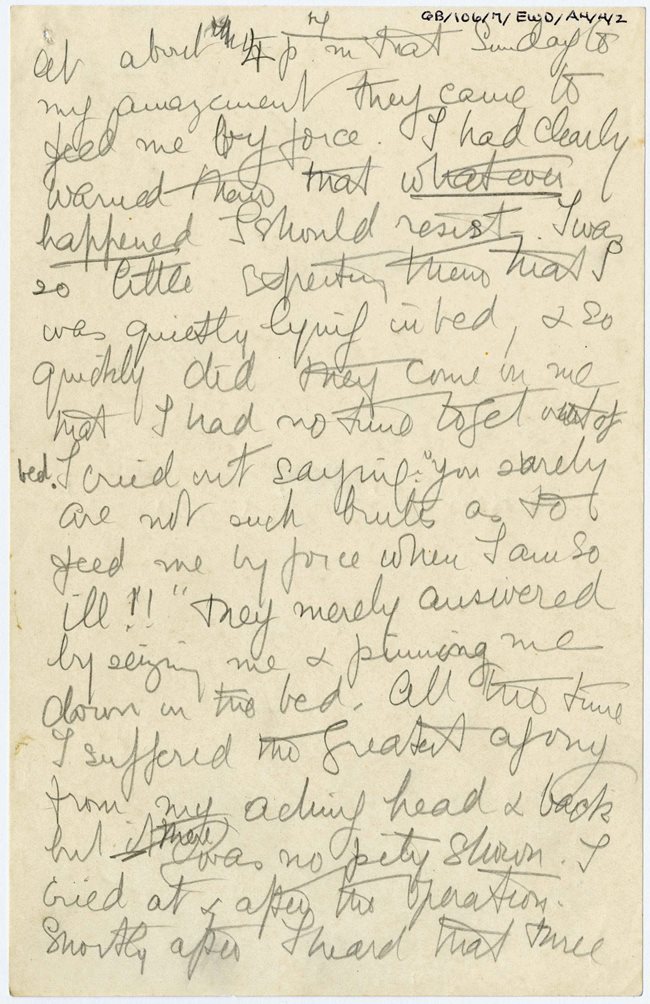 GB/106/7/EWD/A/4/4/2
At about 4 p m that Sunday to
my amazement they came to
feed me by force. I had clearly
warned them that whatever
happened I should resist. I was
so little expecting them that I
was quietly lying in bed, & so
quickly did they come in me
that I had no time to get out of
bed. I cried out saying: "you surely
are not such brutes as to
feed me by force when I am so
ill!!" They merely answered
by seizing me & pinning me
down in the bed. All the time
I suffered the greatest agony
from my aching head & back
but there was no pity shown. I
cried at & after the operation.
Shortly after I heard that three